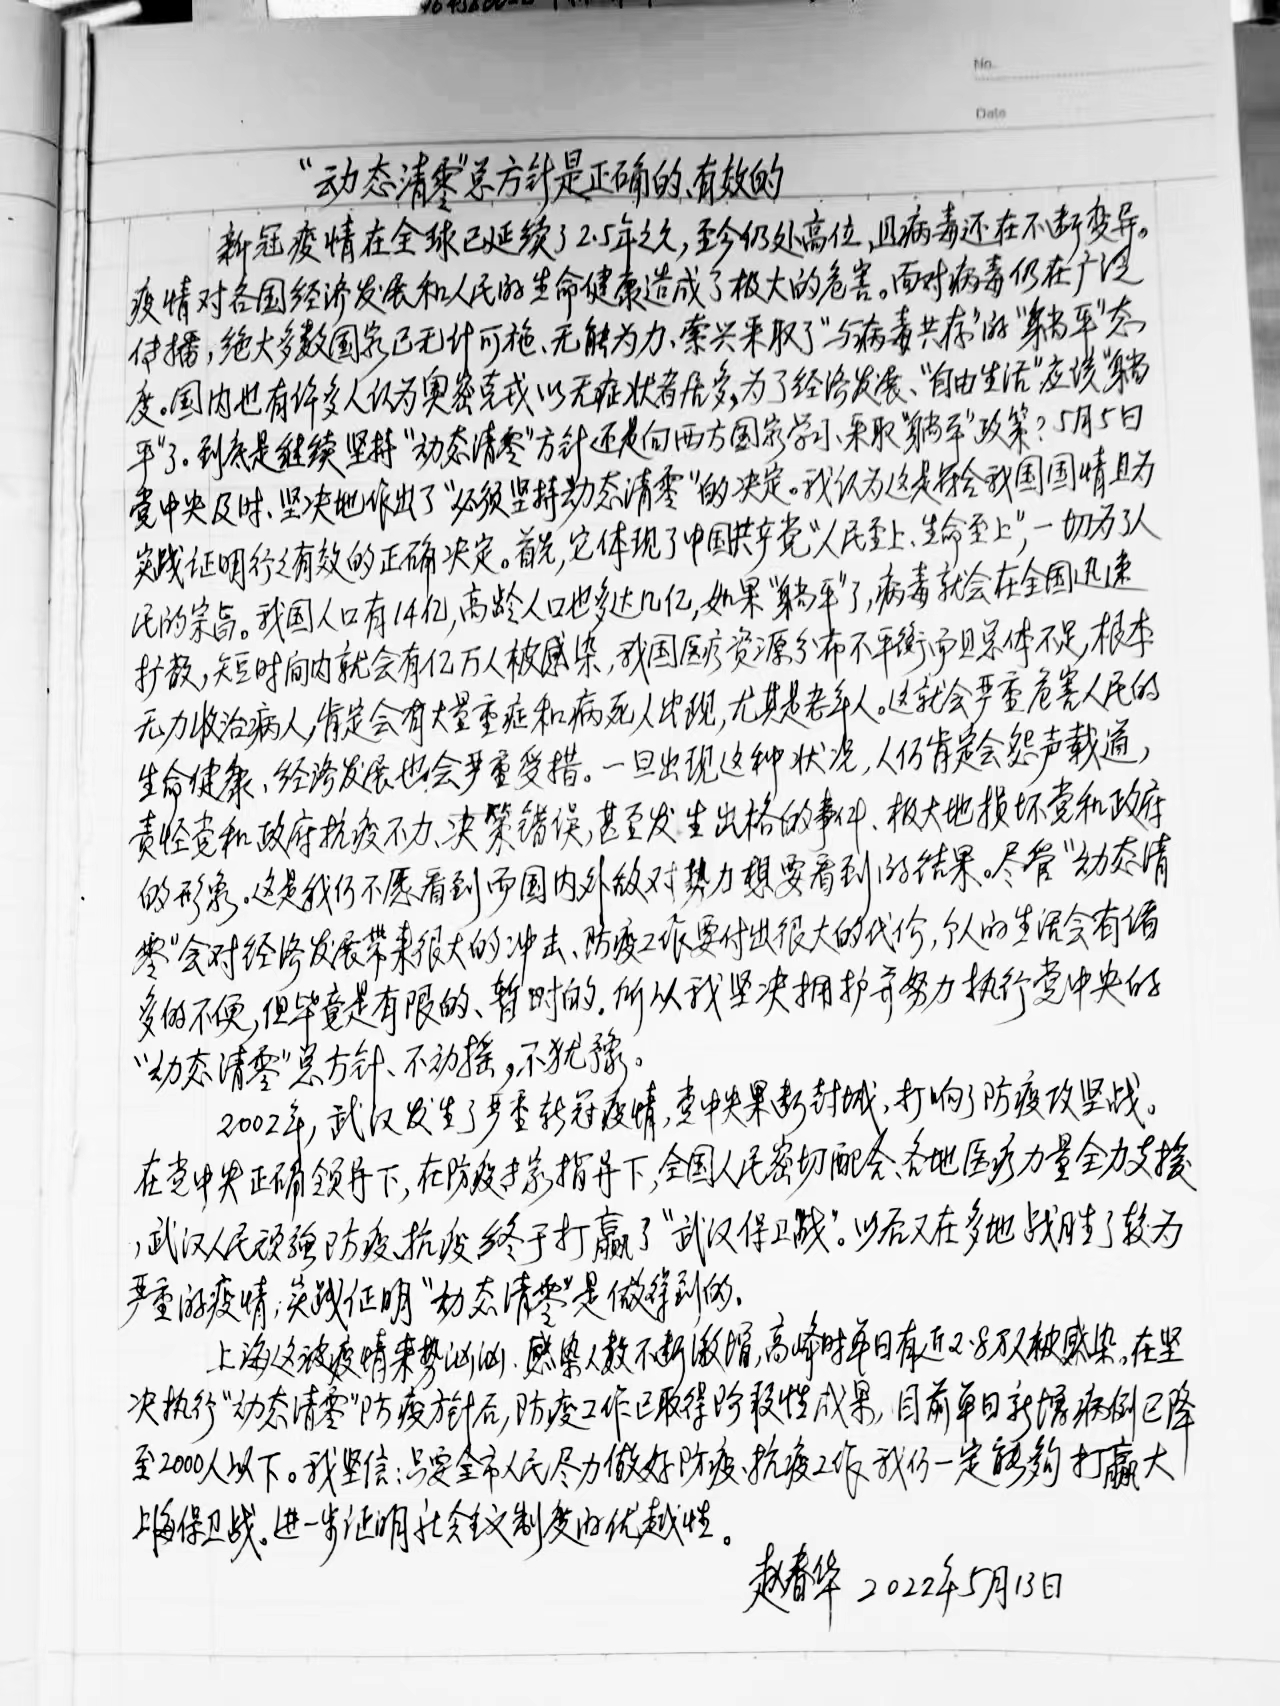 No.
Date
“动态清零”总方针是正确的、有效的
新冠疫情在全球已延续了2.5年之久，至今仍处高位，且病毒还在不断变异。
疫情对各国经济发展和人民的生命健康造成了极大的危害。面对病毒仍在广泛
传播，绝大多数国家已无计可施、无能为力、索兴采取了“与病毒共存”的“躺平”态
度。国内也有许多人认为奥密克戎以无症状者居多，为了经济发展、“自由生活”应该“躺
平”了。到底是继续坚持“动态清零”方针还是向西方国家学习、采取“躺平”政策？5月5日
党中央及时、坚决地作出了“必须坚持动态清零”的决定。我认为这是符合我国国情且为
实践证明行之有效的正确决定。首先，它体现了中国共产党“人民至上、生命至上”，一切为了人
民的宗旨。我国人口有14亿，高龄人口也多达几亿，如果“躺平”了，病毒就会在全国迅速
扩散，短时间内就会有亿万人被感染，我国医疗资源分布不平衡而且总体不足，根本
无力收治病人，肯定会有大量重症和病死人出现，尤其是老年人。这就会严重危害人民的
生命健康、经济发展也会严重受措。一旦出现这种状况，人们肯定会怨声载道，
责怪党和政府抗疫不力、决策错误，甚至发生出格的事件、极大地损坏党和政府
的形象。这是我们不愿看到而国内外敌对势力想要看到的结果。尽管“动态清
零”会对经济发展带来很大的冲击、防疫工作要付出很大的代价，个人的生活会有诸
多的不便，但毕竟是有限的、暂时的。所以我坚决拥护并努力执行党中央的
“动态清零”总方针、不动摇，不犹豫。
2002年，武汉发生了严重新冠疫情，党中央果断封城，打响了防疫攻坚战。
在党中央正确领导下，在防疫专家指导下，全国人民密切配合、各地医疗力量全力支援
，武汉人民顽强防疫、抗疫终于打赢了“武汉保卫战”。以后又在多地战胜了较为
严重的疫情；实践证明“动态清零”是做得到的。
上海这波疫情来势汹汹、感染人数不断激增，高峰时单日有近2.8万人被感染。在坚
决执行“动态清零”防疫方针后，防疫工作已取得阶段性成果，目前单日新增病例已降
至2000人以下。我坚信：只要全市人民尽力做好防疫、抗疫工作，我们一定能够打赢大
上海保卫战。进一步证明社会主义制度的优越性。
赵春华 2022年5月13日